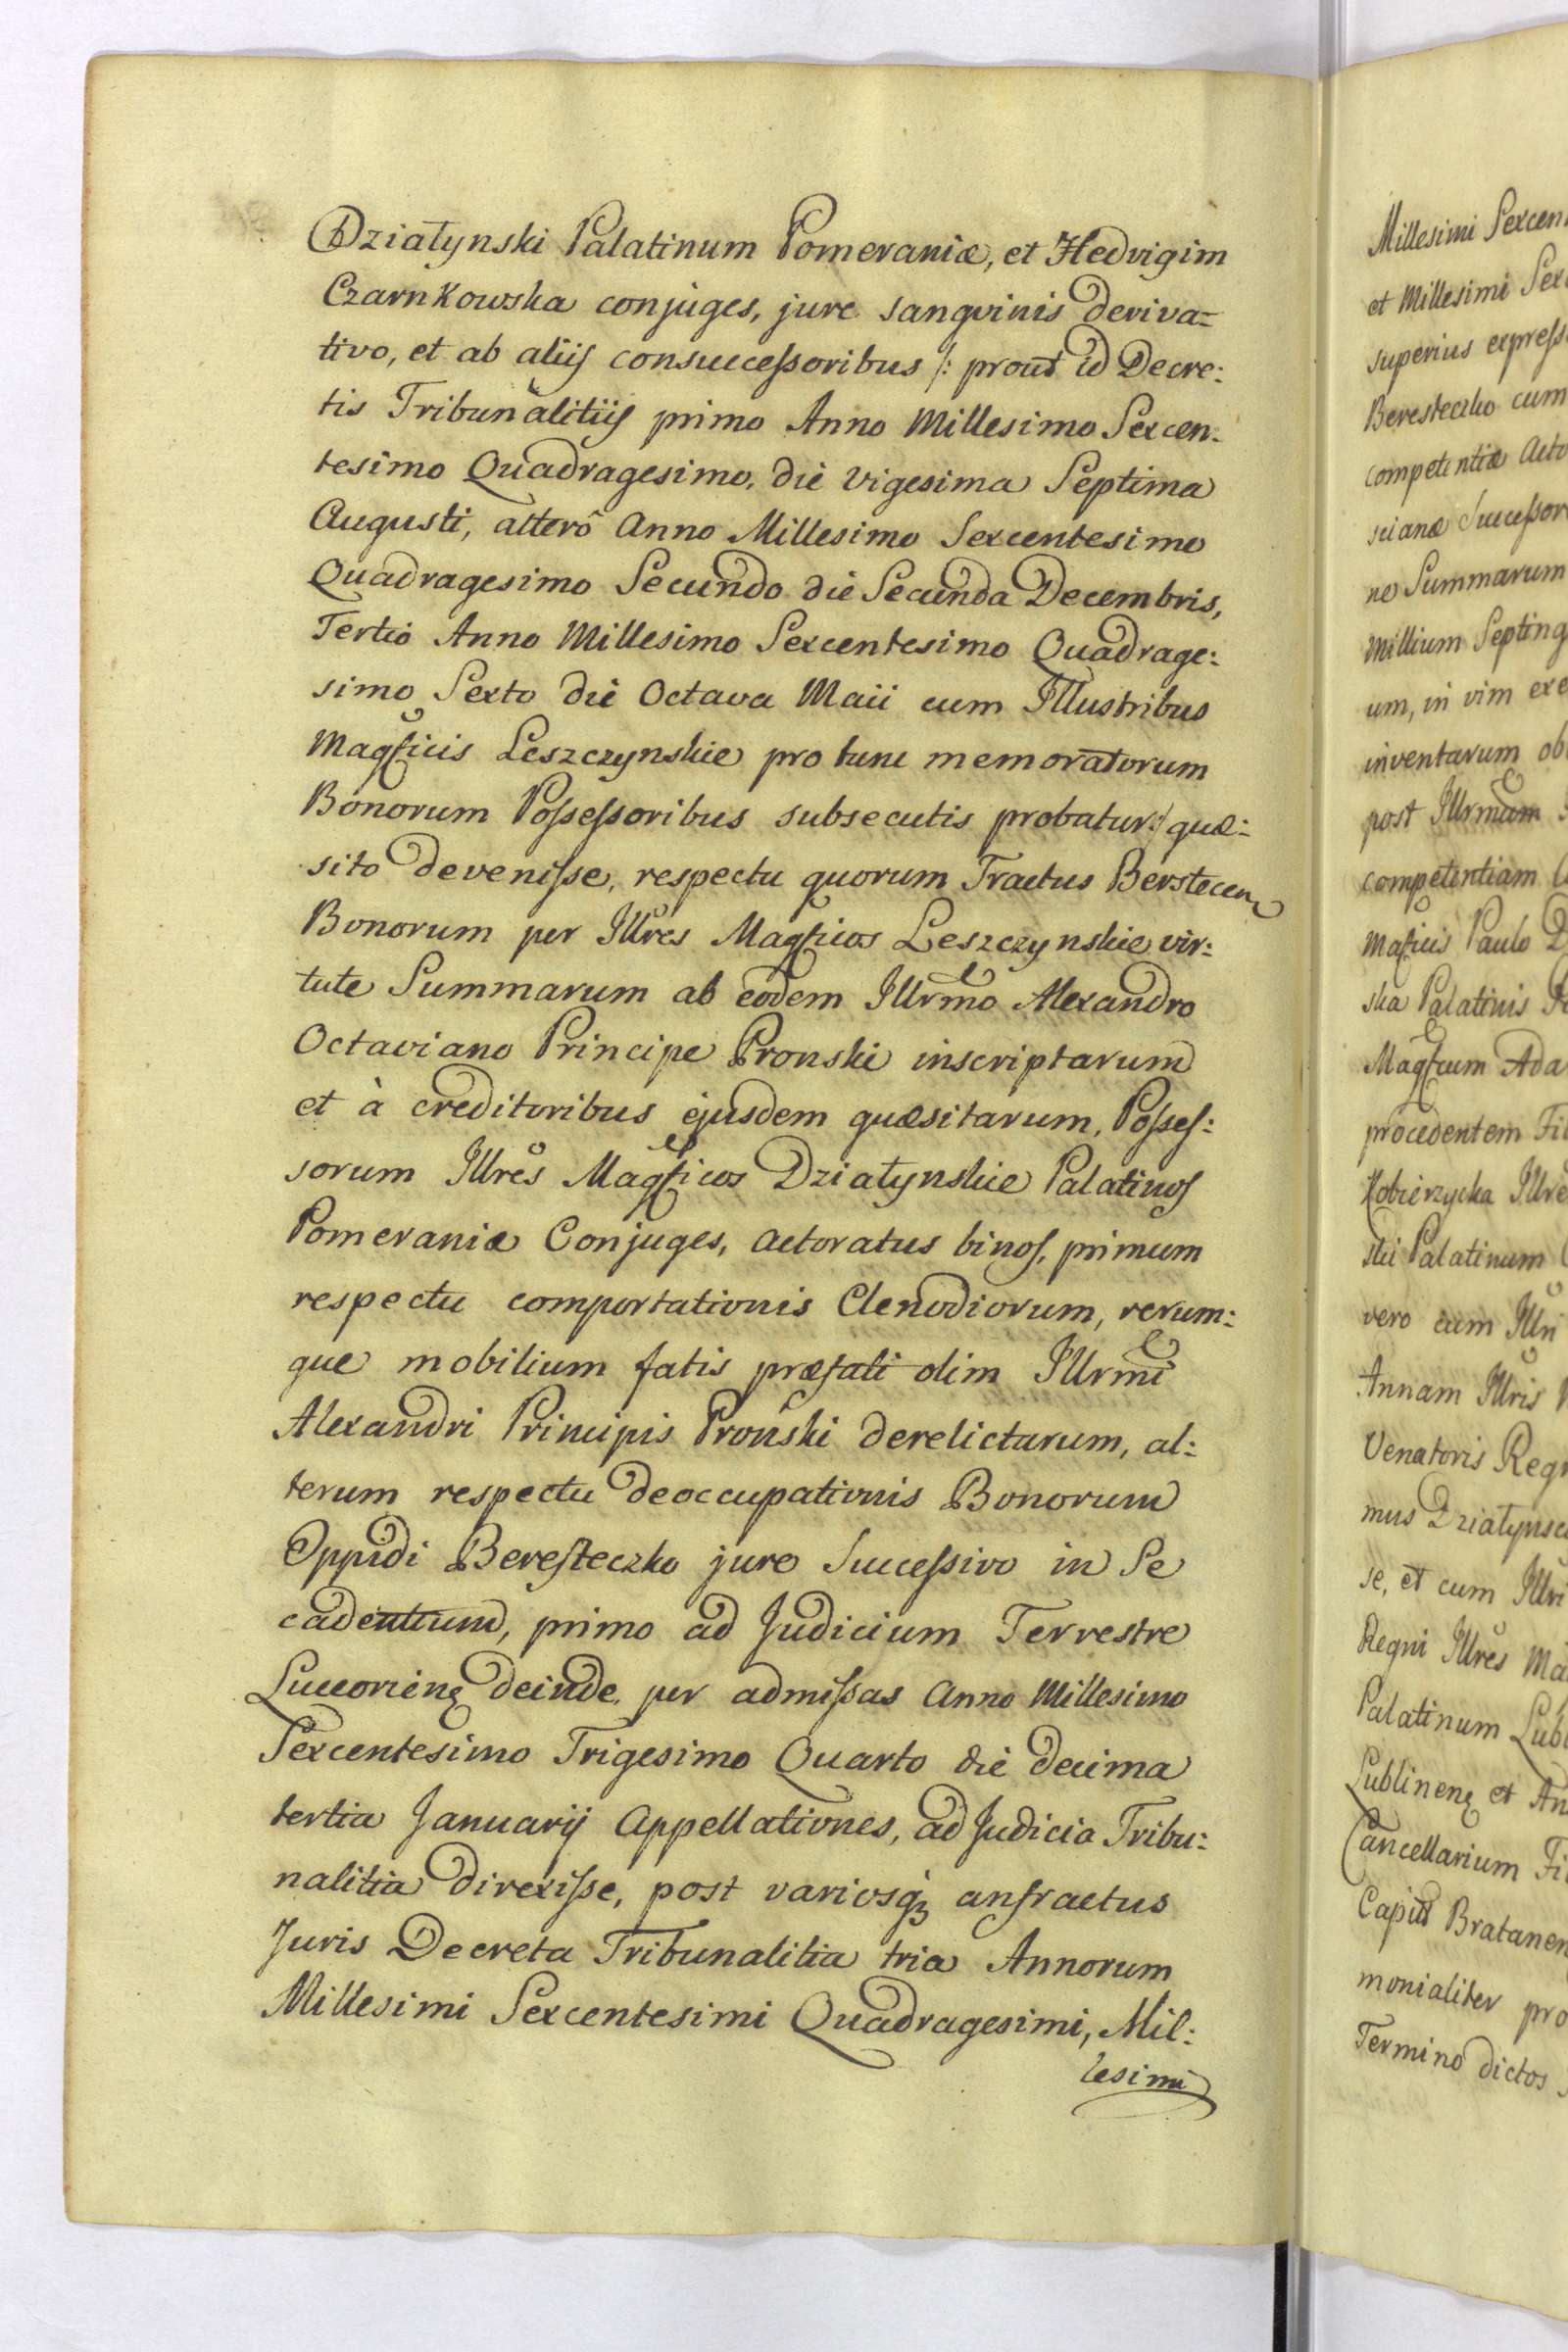 Działynski Palatinum Pomeraniæ, et Hedvigim
Czarnkowska conjuges, jure sangvinis deriva=
tivo, et ab aliis consuccessoribus /: prout id Decre:
tis Tribunalitiis primo Anno Millesimo Sexcen:
tesimo Quadragesimo, die Vigesima Septima
Augusti, alterô Anno Millesimo Sexcentesimo
Quadragesimo Secundo die Secunda Decembris,
Tertio Anno Millesimo Sexcentesimo Quadrage:
simo Sexto die Octava Maii cum Illustribus
Magficis Leszczynskie pro tunc memoratorum
Bonorum Possessoribus subsecutis probatur :/ quæ:
sito devenisse, respectu quorum Tractus Berstecen
Bonorum per Illres Magficos Leszczynskie vir:
tute Summarum ab eodem Illrmo Alexandro
Octaviano Principe Pronski inscriptarum
et à creditoribus ejusdem quæsitarum, Posses:
sorum Illres Magficos Działynskie Palatinos
Pomeraniæ Conjuges, actoratus binos, primum
respectu comportationis Clenodiorum, rerum:
que mobilium fatis præfati olim Illrmi
Alexandri Principis Pronski derelictarum, al:
terum respectu deoccupationis Bonorum
Oppidi Beresteczko jure Successivo in Se
cadentium, primo ad Judicium Terrestre
Luceorien deinde, per admissas Anno Millesimo
Sexcentesimo Trigesimo Quarto die decima
tertia Januarij Appellationes, ad Judicia Tribu:
nalitia direxisse, post variosq3 anfractus
Juris Decreta Tribunalitia tria Annorum
Millesimi Sexcentesimi Quadragesimi, Mil:
lesimi
Millesimi Sexcen
et Millesimi Sex
superius express
Beresteczko cum
competentiæ Acto
scianæ Successor
ne Summarum
Millium Septing
um, in vim exe
inventarum ob
post Illrmum
competentiam
Mağficis Paulo D
ska Palatinis
Magficum Ada
procedentem Fi
Kobierzycka Illre
ski Palatinum
vero cum Illri
Annam Illris
Venatoris Regn
mus Działynsc
se, et cum Illri
Regni Illres Ma
Palatinum Lub
Lublinen et An
Cancellarium Fi
Capit Bratanen
monialiter pro
Termino dictos